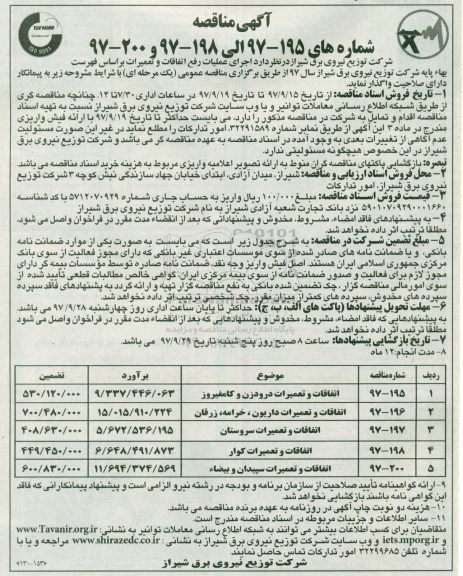 آگهی مناقصه
شماره های ۱۹۵-۹۷ الی ۱۹۸-۹۷ و ۲۰۰-۹۷
TUV NORD
ISO 9001
شرکت توزیع نیروی برق شیراز درنظر دارد اجرای عملیات رفع اتفاقات و تعمیرات براساس فهرست
بهاء پایه شرکت توزیع نیروی برق شیراز سال ۹۷ از طریق برگزاری مناقصه عمومی (یک مرحله ای) با شرایط مشروحه زیر به پیمانکار
دارای صلاحیت واگذار نماید.
۱- تاریخ فروش اسناد مناقصه: از تاریخ ۹۷/۹/۱۵ تا تاریخ ۹۷/۹/۱۹ در ساعات اداری ۷/۳۰ تا ۱۴. چنانچه مناقصه گری
از طریق شبکه اطلاع رسانی معاملات توانیر و یا وب سایت شرکت توزیع نیروی برق شیراز نسبت به تهیه اسناد
مناقصه اقدام و تمایل به شرکت در مناقصه مذکور را دارد، می بایست حداکثر تا تاریخ ۹۷/۹/۱۹ با ارائه فیش واریزی
مندرج در ماده ۳ این آگهی از طریق نمابر شماره ۳۲۲۹۱۵۸۹ امور تدارکات را مطلع نماید در غیر این صورت مسئولیت
عدم آگاهی از تغییرات بعدی به وجود آمده در اسناد مناقصه به عهده مناقصه گر می باشد و شرکت توزیع نیروی برق
شیراز در این خصوص هیچگونه مسئولیتی ندارد.
تبصره: بازگشایی پاکتهای مناقصه گران منوط به ارائه تصویر اعلامیه واریزی مربوط به هزینه خرید اسناد مناقصه می باشد.
۲- محل فروش اسناد ارزیابی و مناقصه: شیراز، میدان آزادی، ابتدای خیابان جهاد سازندگی نبش کوچه ۳ شرکت توزیع
نیروی برق شیراز، امور تدارکات
۳- قیمت فروش اسناد مناقصه: مبلغ ۱۰۰/۰۰۰ ریال واریز به حساب جاری شماره ۵۷۱۲۰۷۰۹۲۹ با کد شناسه
۵۹۰۱۰۷۰۹۲۹۰۰۰۱۶۶۰ نزد بانک تجارت شعبه آزادی شیراز به نام شرکت توزیع نیروی برق شیراز
۴- به پیشنهادهای فاقد امضاء، مشروط، مخدوش و پیشنهاداتی که بعد از انقضاء مدت مقرر در فراخوان واصل می شود،
مطلقا ترتیب اثر داده نخواهد شد.
۵- مبلغ تضمین شرکت در مناقصه: به شرح جدول زیر است که می بایست به صورت یکی از موارد ضمانت نامه
بانکی و یا ضمانت نامه های صادر شده از سوی موسسات اعتباری غیر بانکی که دارای مجوز فعالیت از سوی بانک
مرکزی جمهوری اسلامی ایران هستند. اصل فیش واریز وجه نقد، ضمانت نامه صادره توسط موسسات بیمه گر دارای
مجوز لازم برای فعالیت و صدور ضمانت نامه از سوی بیمه مرکزی ایران، گواهی خالص مطالبات قطعی تأیید شده از
سوی امورمالی مناقصه گزار، چک تضمین شده بانکی به نفع مناقصه گزار تهیه و ارائه گردد به پشنهادهای فاقد سپرده
سپرده های مخدوش، سپرده های کمتر از میزان مقرر، چک شخصی ترتیب اثر داده نخواهد شد.
۶- مهلت تحویل پیشنهادها (پاکت های الف، ب، ج): حداکثر تا پایان ساعت اداری روز چهارشنبه ۹۷/۹/۲۸ می باشد.
به پیشنهادهایی که فاقد امضاء، مشروط، مخدوش و پیشنهادهایی که بعد از انقضاء مدت مقرر در فراخوان واصل می شود
مطلقا ترتیب اثر داده نخواهد شد.
۷- تاریخ بازگشایی پیشنهادها: ساعت ۸ صبح روز پنج شنبه تاریخ ۹۷/۹/۲۹ می باشد.
۸- مدت انجام: ۱۲ ماه
ردیف شماره مناقصه موضوع برآورد تضمین
۱ ۱۹۵-۹۷ اتفاقات و تعمیرات درودزن و کامفیروز ۹/۳۳۷/۴۴۶/۰۶۳ ۵۳۰/۱۲۰/۰۰۰
۲ ۱۹۶-۹۷ اتفاقات و تعمیرات داریون، خرامه، زرقان ۱۵/۰۱۵/۹۱۰/۲۲۴ ۷۰۰/۴۸۰/۰۰۰
۳ ۱۹۷-۹۷ اتفاقات و تعمیرات سروستان ۵/۶۷۲/۵۳۶/۱۹۵ ۴۰۸/۶۳۰/۰۰۰
۴ ۱۹۸-۹۷ اتفاقات و تعمیرات کوار ۶/۶۴۸/۴۹۱/۸۷۳ ۴۴۹/۴۵۰/۰۰۰
۵ ۲۰۰-۹۷ اتفاقات و تعمیرات سپیدان و بیضاء ۱۱/۶۹۴/۳۷۴/۵۶۹ ۶۰۰/۸۳۰/۰۰۰
۹- ارائه گواهینامه تأیید صلاحیت از سازمان برنامه و بودجه در رشته نیرو الزامی است و پیشنهاد پیمانکارانی که فاقد
این گواهی نامه باشند بازگشایی نخواهد شد.
۱۰- هزینه دو نوبت چاپ آگهی در روزنامه به عهده برنده مناقصه می باشد.
۱۱- سایر اطلاعات و جزییات مربوطه در اسناد مناقصه مندرج است.
متقاضیان برای کسب اطلاعات بیشتر می توانند به شبکه اطلاع رسانی معاملات توانیر به نشانی: www.Tavanir.org.ir
و iets.mporg.ir و وب سایت شرکت توزیع نیروی برق شیراز به نشانی: www.shirazedc.co.ir مراجعه و یا با
شماره تلفن ۳۲۲۹۹۶۸۵ امور تدارکات تماس حاصل نمایند.
شرکت توزیع نیروی برق شیراز
«۱۳۰-۱۵۳»